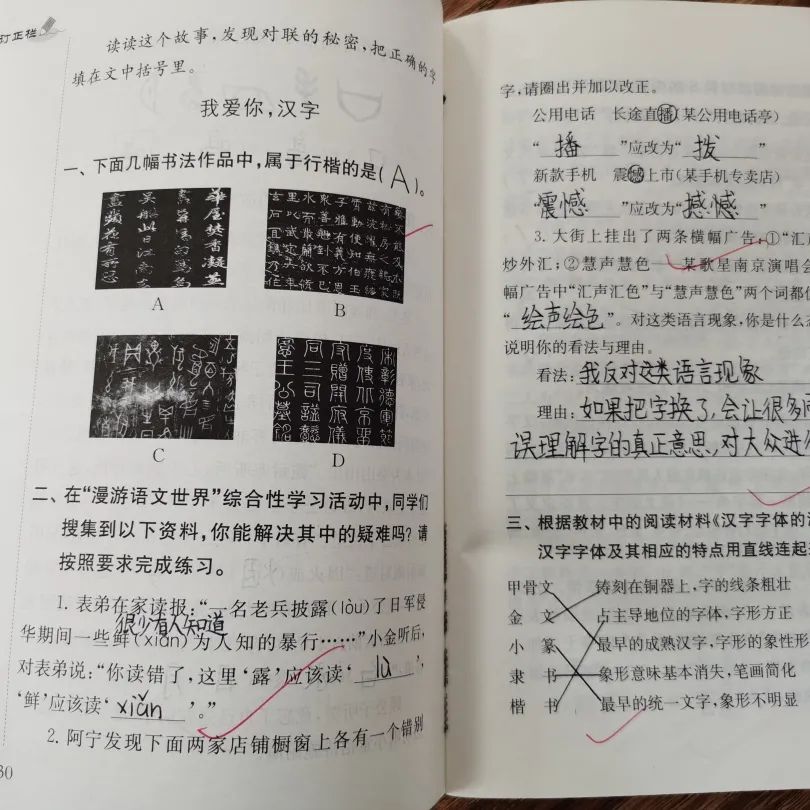 订正栏
读读这个故事，发现对联的秘密，把正确的字
填在文中括号里。
我爱你，汉字
一、下面几幅书法作品中，属于行楷的是(A)。
A
B
C
D
二、在“漫游语文世界”综合性学习活动中，同学们
搜集到以下资料，你能解决其中的疑难吗？请
按照要求完成练习。
1. 表弟在家读报：“一名老兵披露(lòu)了日军侵
很少有人知道
华期间一些鲜(xiān)为人知的暴行……”小金听后，
对表弟说：“你读错了，这里‘露’应该读‘lù’，
‘鲜’应该读‘xiǎn’。”
2. 阿宁发现下面两家店铺橱窗上各有一个错别
30
字，请圈出并加以改正。
公用电话 长途直播(某公用电话亭)
“播”应改为“拨”
新款手机 震憾上市(某手机专卖店)
“震憾”应改为“撼憾”
3. 大街上挂出了两条横幅广告：①“汇声
炒外汇；②慧声慧色——某歌星南京演唱会
幅广告中“汇声汇色”与“慧声慧色”两个词都
“绘声绘色”。对这类语言现象，你是什么
说明你的看法与理由。
看法：我反对这类语言现象
理由：如果把字换了，会让很多
误理解字的真正意思，对大众进
三、根据教材中的阅读材料《汉字字体的
汉字字体及其相应的特点用直线连起
甲骨文 铸刻在铜器上，字的线条粗壮
金文 占主导地位的字体，字形方正
小篆 最早的成熟汉字，字形的象性形
隶书 象形意味基本消失，笔画简化
楷书 最早的统一文字，象形不明显